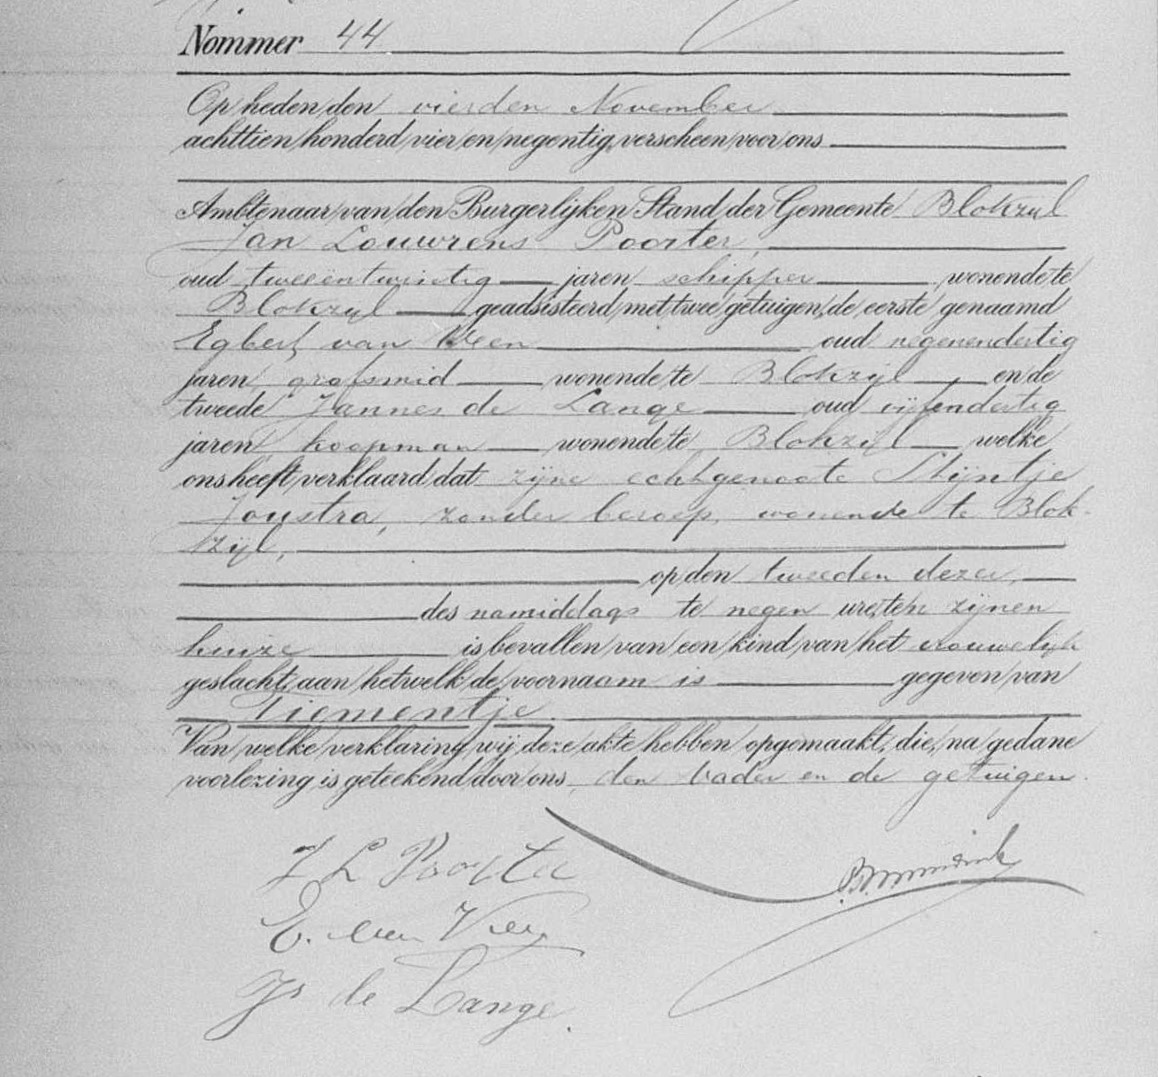 Nommer 44
Op heden den vierden November
achttien honderd vier en negentig, verscheen voor ons
Ambtenaar van den Burgerlijken Stand der Gemeente Blokzyl
Jan Louwrens Poorter,
oud tweeentwintig jaren schipper wonende te
Blokzyl geadsisteerd met twee getuigen, de eerste genaamd
Egbert van Veen oud negenendertig
jaren, grofsmid wonende te Blokzijl en de
tweede Jannes de Lange oud vijfendertig
jaren koopman wonende te Blokzijl welke
ons heeft verklaard dat zijne echtgenoote Stijntje
Joustra, zonder beroep, wonende te Blok-
zijl,
op den tweeden dezer,
des namiddags te negen ure, ten zijnen
huize is bevallen van een kind van het vrouwelijk
geslacht, aan hetwelk de voornaam is gegeven van
Tiementje
Van welke verklaring, wij deze akte hebben opgemaakt, die, na gedane
voorlezing is geteekend door ons, den vader en de getuigen.
J L Poorter
E. van Veen
Js de Lange.